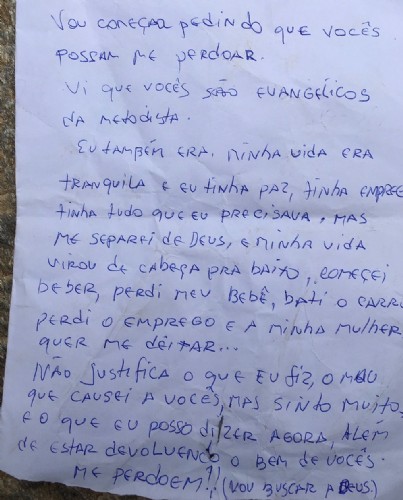 VOU COMEÇAR PEDINDO QUE VOCÊS
POSSAM ME PERDOAR.
VI QUE VOCÊS SÃO EVANGÉLICOS
DA METODISTA.
EU TAMBÉM ERA. MINHA VIDA ERA
TRANQUILA E EU TINHA PAZ, TINHA EMPRE
TINHA TUDO QUE EU PRECISAVA, MAS
ME SEPAREI DE DEUS, E MINHA VIDA
VIROU DE CABEÇA PRA BAIXO, COMECEI
BEBER, PERDI MEU BEBÊ, BATI O CARR
PERDI O EMPREGO E A MINHA MULHER
QUER ME DEITAR...
NÃO JUSTIFICA O QUE EU FIZ, O MAU
QUE CAUSEI A VOCÊS, MAS SINTO MUITO,
E O QUE EU POSSO DIZER AGORA, ALÉM
DE ESTAR DEVOLVENDO O BEM DE VOCÊS.
ME PERDOEM!! (VOU BUSCAR A DEUS)